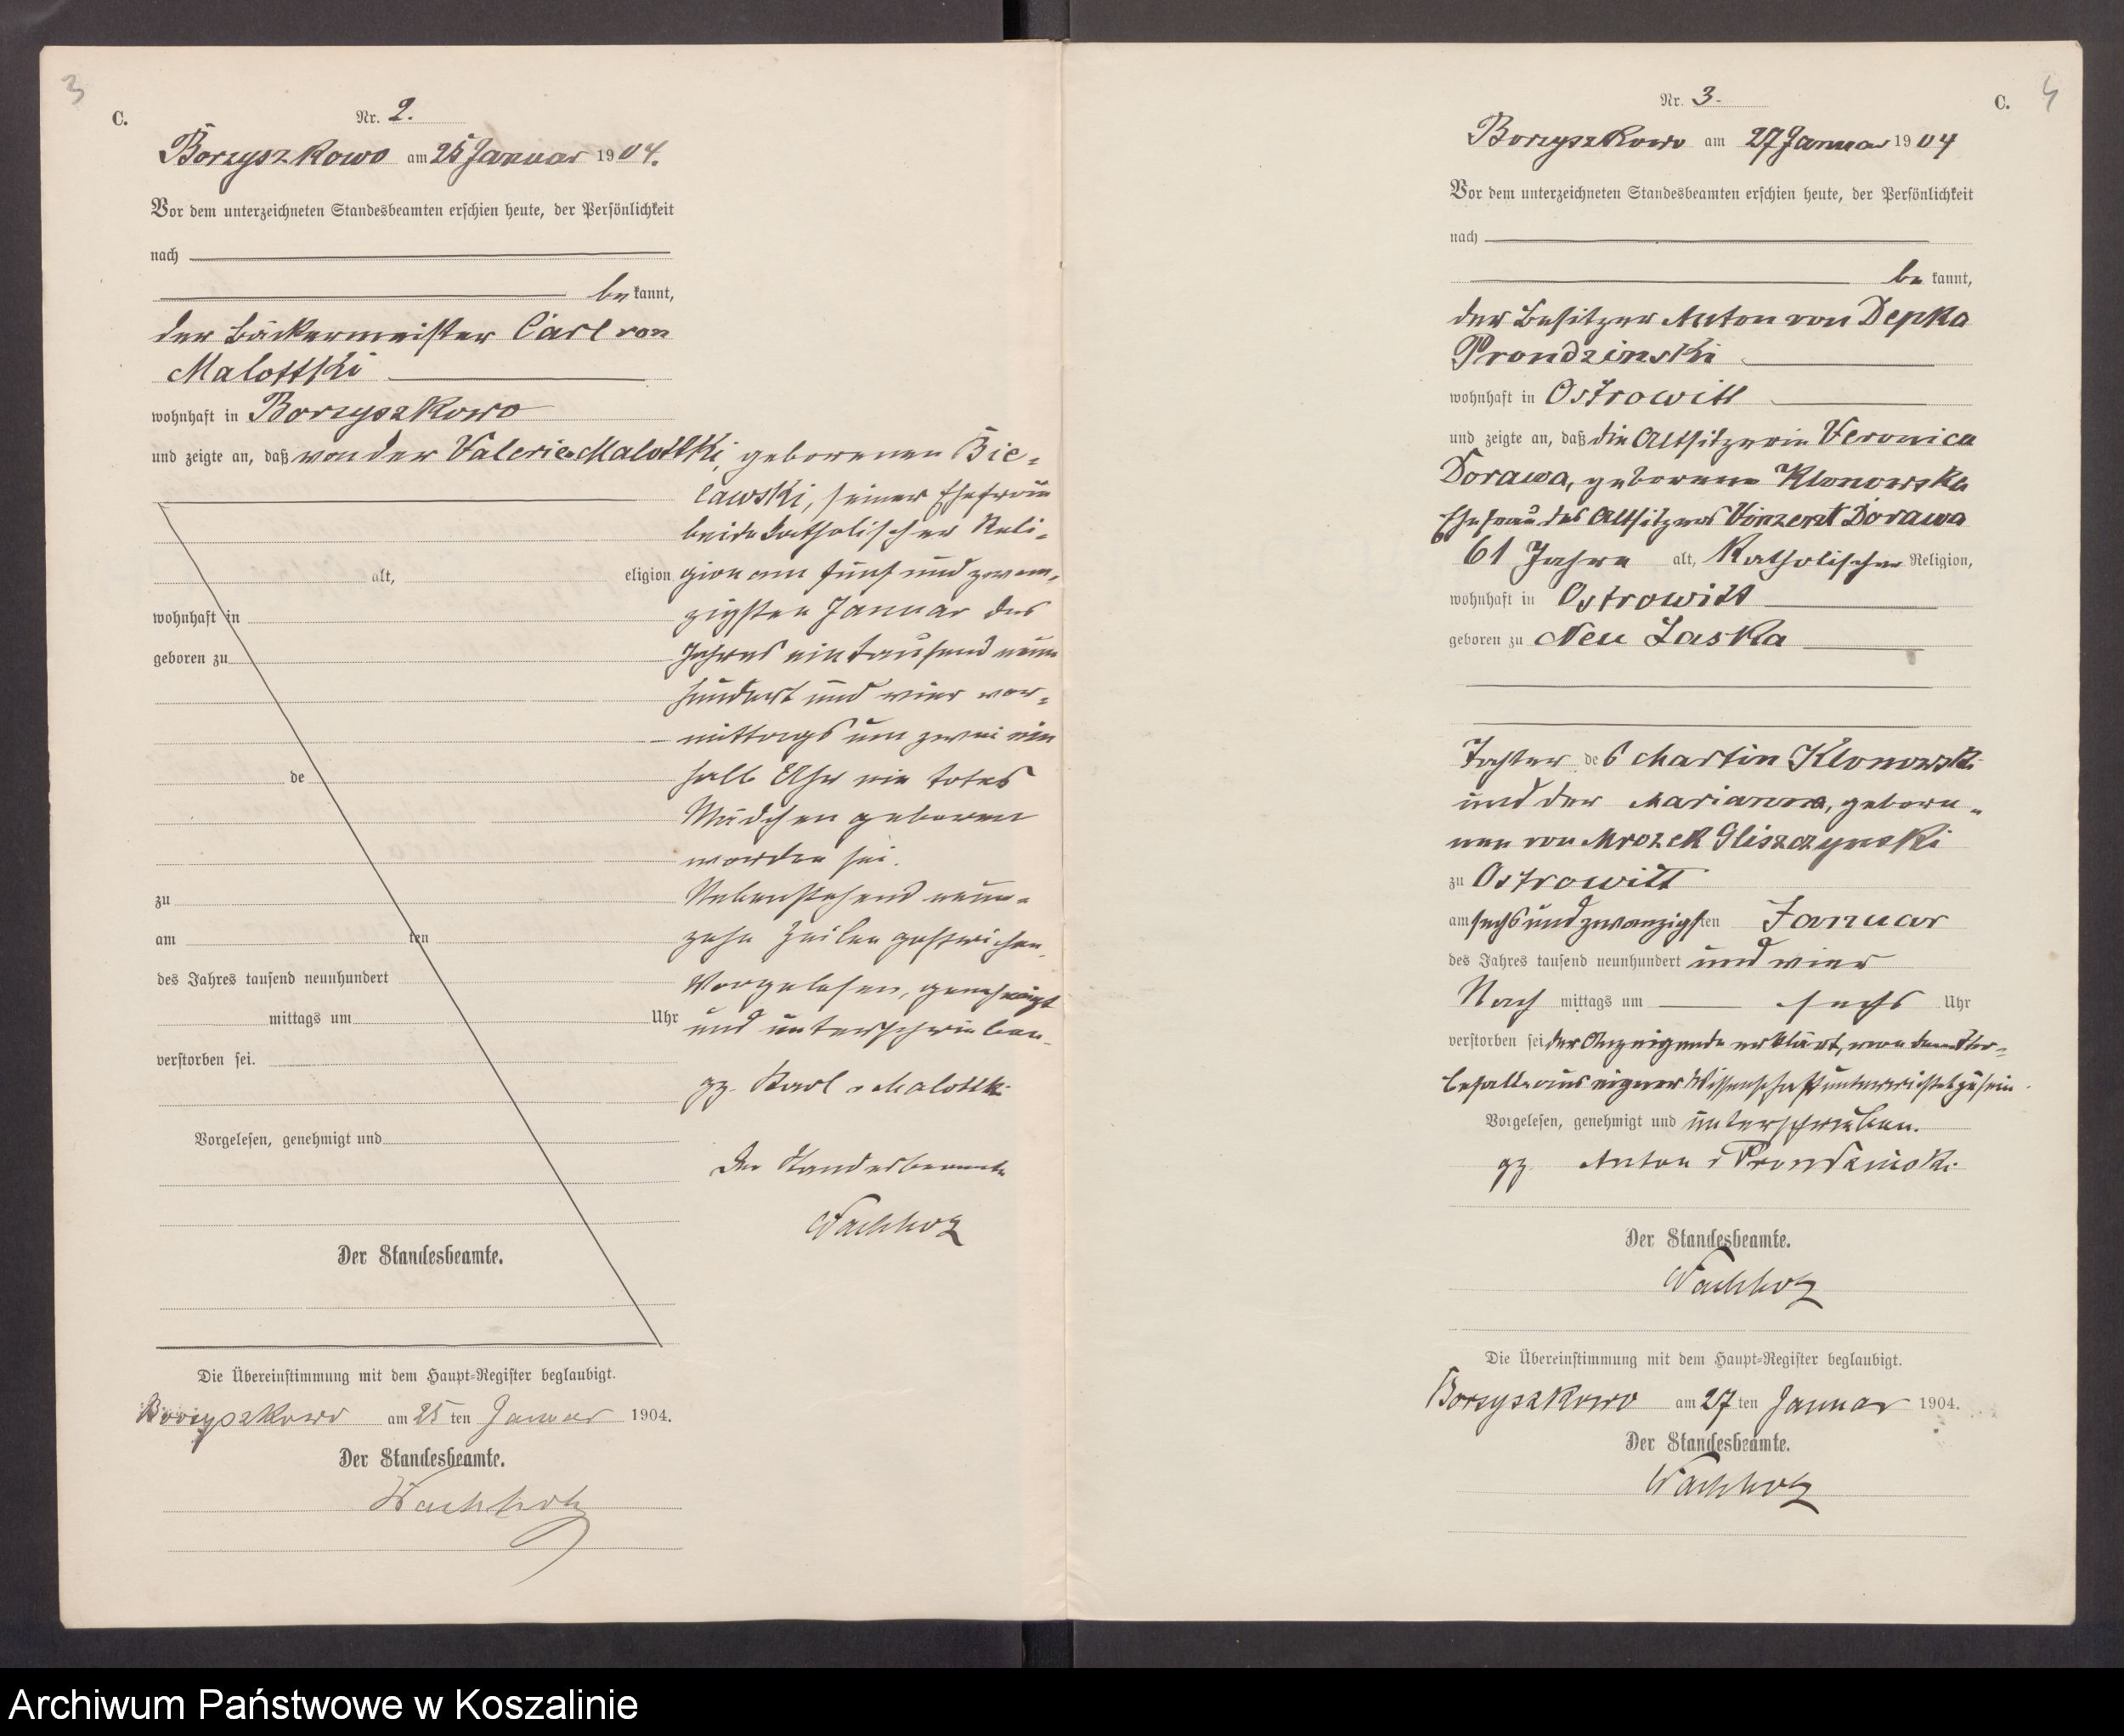 3
C.
Nr. 2.
Borzyszkowo am 25 Januar 1904.
Vor dem unterzeichneten Standesbeamten erschien heute, der Persönlichkeit
nach
bekannt,
der Bäckermeister Carl von
Malottki
wohnhaft in Borzyszkowo
und zeigte an, daß von der Valeria Malottki, geborenen Bie-
lawski, seiner Ehefrau
beide katholischer Reli-
alt, eligion gion am fünf und zwan-
wohnhaft in zigsten Januar des
geboren zu Jahres ein tausend neun
hundert und vier vor-
mittags um zwei ein
de halb Uhr ein totes
Mädchen geboren
worden sei.
zu Nebenstehend neun-
am ten zehn Zeilen gestrichen.
des Jahres tausend neunhundert Vorgelesen, genehmigt
mittags um Uhr und unterschrieben.
verstorben sei.
gz. Karl v Malottki
Vorgelesen, genehmigt und
Der Standesbeamte
Wachholz
Der Standesbeamte.
Die Übereinstimmung mit dem Haupt-Register beglaubigt.
Borzyszkowo am 25 ten Januar 1904.
Der Standesbeamte.
Wachholz
4
Nr. 3.
C.
Borzyszkowo am 27 Januar 1904
Vor dem unterzeichneten Standesbeamten erschien heute, der Persönlichkeit
nach
bekannt,
der Besitzer Anton von Depka
Prondzinski
wohnhaft in Ostrowitt
und zeigte an, daß die Altsitzerin Veronica
Dorawa, geborene Klonowska
Ehefrau des Altsitzers Vinzent Dorawa
61 Jahre alt, Katholischer Religion,
wohnhaft in Ostrowitt
geboren zu Neu Laska
Tochter des Martin Klonowski
und der Marianna, gebore-
nen von Mrozek Gliszczynski
zu Ostrowitt
am sechs und zwanzigsten Januar
des Jahres tausend neunhundert und vier
Nach mittags um sechs Uhr
verstorben sei der Anzeigende erklärt, von dem Ster-
befalle aus eigener Wissenschaft unterrichtet zu sein.
Vorgelesen, genehmigt und unterschrieben.
gz. Anton v Prondzinski.
Der Standesbeamte.
Wachholz
Die Übereinstimmung mit dem Haupt-Register beglaubigt.
Borzyszkowo am 27 ten Januar 1904.
Der Standesbeamte.
Wachholz
Archiwum Państwowe w Koszalinie